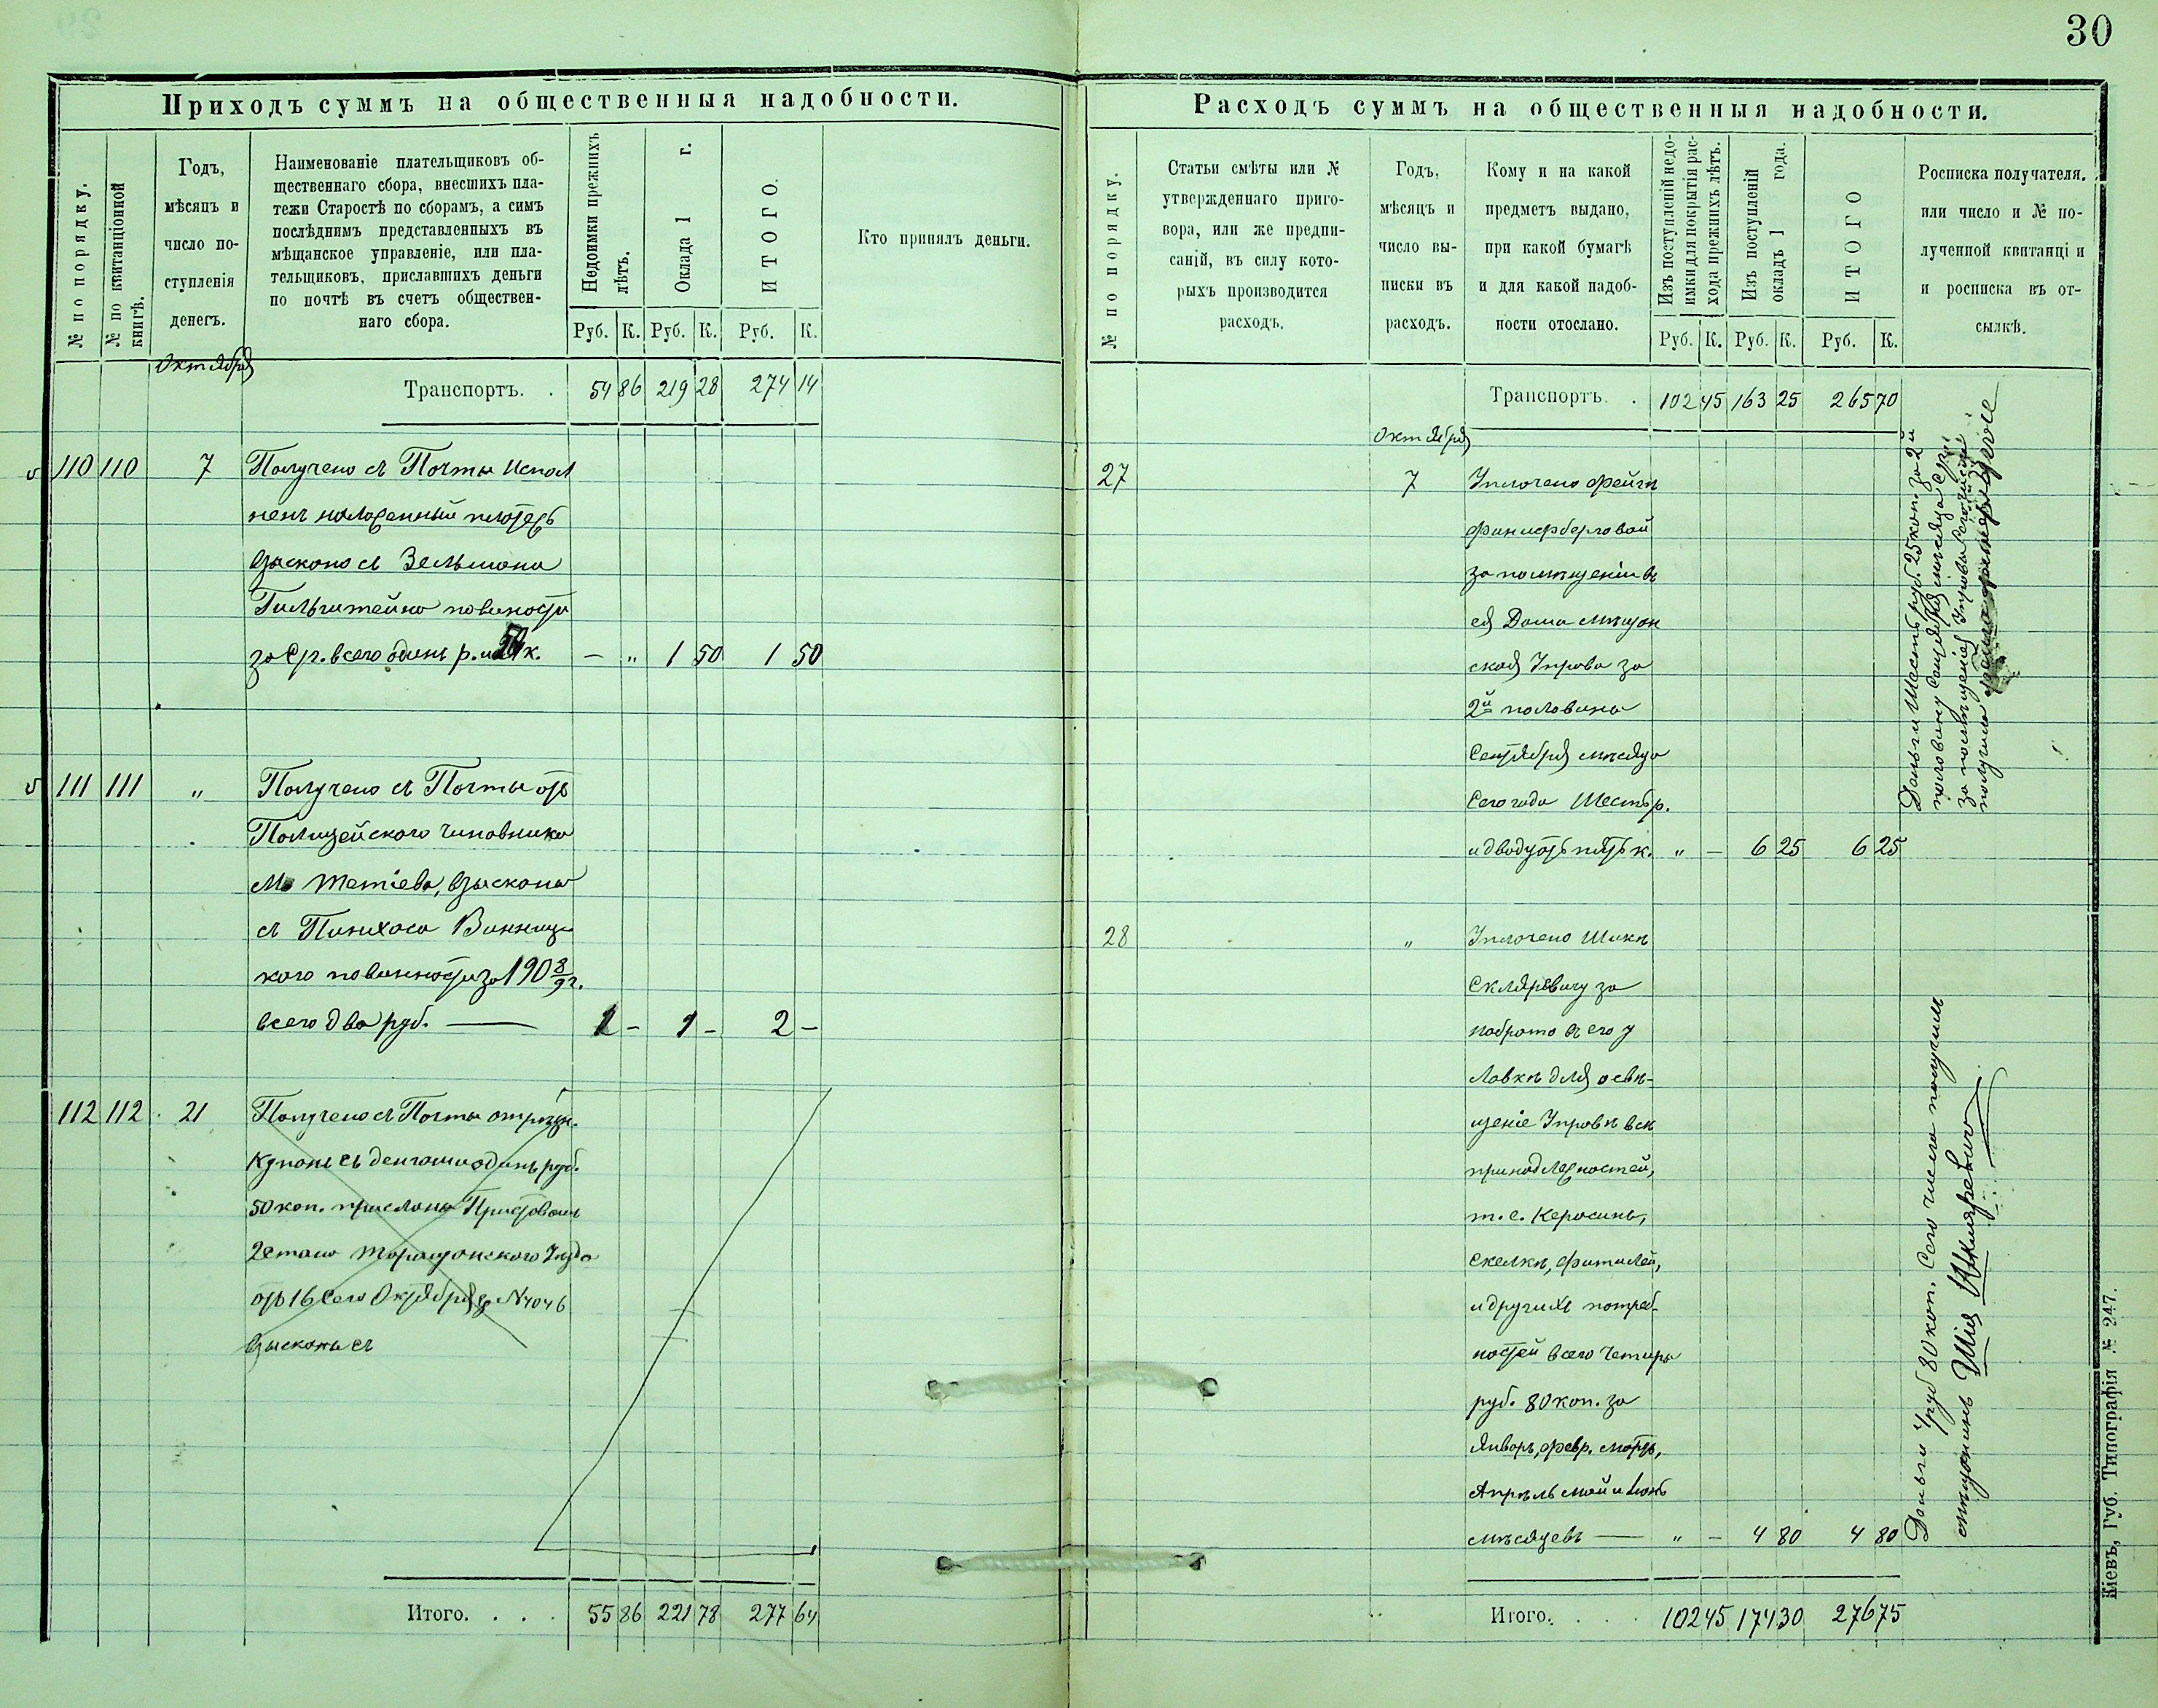 30
Приходъ суммъ на общественныя надобности.
№ по порядку.
№ по квитанціонной
книгѣ.
Годъ,
мѣсяцъ и
число по-
ступленія
денегъ.
Наименованіе плательщиковъ об-
щественнаго сбора, внесшихъ пла-
тежи Старостѣ по сборамъ, а симъ
послѣднимъ представленныхъ въ
мѣщанское управленіе, или пла-
тельщиковъ, приславшихъ деньги
по почтѣ въ счетъ обществен-
наго сбора.
Недоимки прежнихъ
лѣтъ.
Оклада 1 г.
ИТОГО.
Руб. К. Руб. К. Руб. К.
Кто принялъ деньги.
Октября
Транспортъ. . 54 86 219 28 274 14
110 110 7 Получено съ Почты испол
ненъ наложенный платежъ
взыскано съ Зельмана
Гильштейна повинности
за с/г. всего одинъ р. и 50 к. — „ 1 50 1 50
111 111 „ Получено съ Почты отъ
Полицейского чиновника
м. Тетіева, взыскана
съ Пинхаса Винниц
кого повинности за 190 8/9 г.
всего два руб. — 1 – 1 – 2 –
112 112 21 Получено съ Почты отрѣзн.
купонъ съ денгами одинъ руб.
50 коп. прислано Приставомъ
2 стана Таращанского уезда
отъ 16 сего Октября з № 4046
взысканы съ
Итого. . . . 55 86 221 78 277 64
Расходъ суммъ на общественныя надобности.
№ по порядку.
Статьи смѣты или №
утвержденнаго приго-
вора, или же предпи-
саній, въ силу кото-
рыхъ производится
расходъ.
Годъ,
мѣсяцъ и
число вы-
писки въ
расходъ.
Кому и на какой
предметъ выдано,
при какой бумагѣ
и для какой надоб-
ности отослано.
Изъ поступленій недо-
имки для покрытія рас-
хода прежнихъ лѣтъ.
Изъ поступленій
окладъ 1 года.
ИТОГО
Руб. К. Руб. К. Руб. К.
Росписка получателя.
или число и № по-
лученной квитанціи
и росписка въ от-
сылкѣ.
Транспортъ. . 102 45 163 25 265 70
Октября
27 7 Уплочено Фейгѣ
Финцербарговой
за помѣщеніи въ
ея Дома мѣщан
ская Управа за
2й половина
Сентября мѣсяца
сего года Шесть р.
и двадцать пять к. „ – 6 25 6 25
28 „ Уплочено Шикѣ
Скляревичу за
набрато въ его у
лавкѣ для освѣ-
щеніе Управѣ всѣ
принадлежностей,
т. е. Керосинъ,
скелкѣ, фитилей,
и другихъ потреб-
ностей всего Четыры
руб. 80 коп. за
Январь, февр. мартъ,
Апрѣль май и Июнь
мѣсяцевъ — „ – 4 80 4 80
Итого. . . . 102 45 174 30 276 75
Деньги Шесть руб. 25 коп. за 2й
половину Сентября мѣсяца с/г.
за помѣщеніе Управы сего числа
получила
Деньги 4 руб 80 коп. Сего числа получилъ
мѣщанинъ Шія Шкляревичъ
Кіевъ, Губ. Типографія № 247.